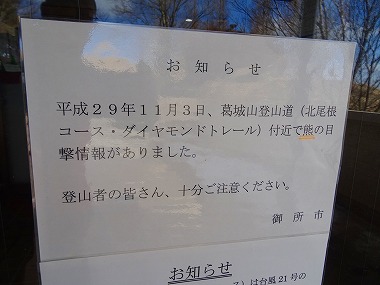 お知らせ
平成２９年１１月３日、葛城山登山道（北尾根
コース・ダイヤモンドトレール）付近で熊の目
撃情報がありました。
登山者の皆さん、十分ご注意ください。
御所市
お知らせ
）は台風21号の